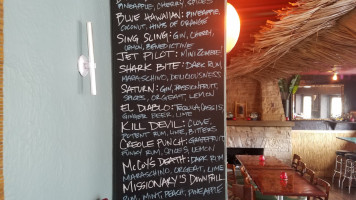 PINEAPPLE, CHERRY, SPICES
BLUE HAWAIIAN: PINEAPPLE,
COCONUT, HINTS OF ORANGE
SING SLING: GIN, CHERRY,
LEMON, BENEDICTINE
JET PILOT: MINI ZOMBIE
SHARK BITE: DARK RUM,
MARASCHINO, DELICIOUSNESS
SATURN: GIN, PASSIONFRUIT,
SPICES, ORGEAT, LEMON
EL DIABLO: TEQUILA, CASSIS,
GINGER BEER, LIME
KILL DEVIL: CLOVE,
POTENT RUM, LIME, BITTERS
CREOLE PUNCH: GRAPEFRUIT,
FUNKY RUM, SPICES, LEMON
MCCOY'S DEATH: DARK RUM
MARASCHINO, ORGEAT, LIME
MISSIONARY'S DOWNFALL
RUM, MINT, PEACH, PINEAPPLE